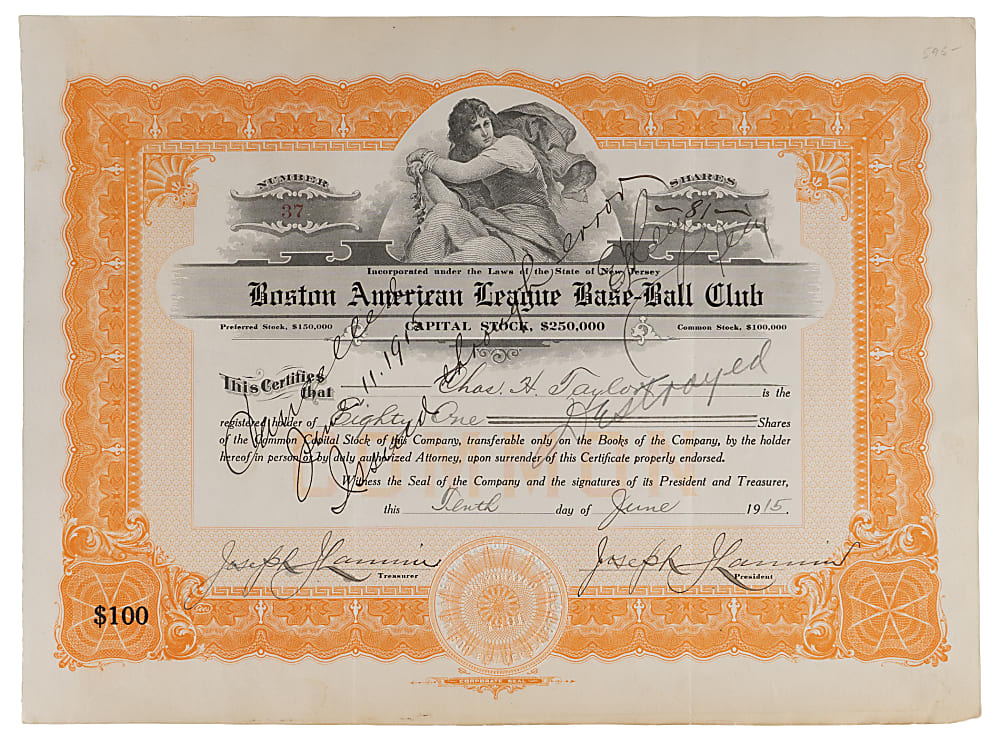 595-
NUMBER
37
SHARES
-81-
Incorporated under the Laws of the State of New Jersey
Boston American League Base-Ball Club
Preferred Stock, $150,000 CAPITAL STOCK, $250,000 Common Stock, $100,000
This Certifies that Chas. H. Taylor is the
registered holder of Eighty One Shares
of the Common Capital Stock of this Company, transferable only on the Books of the Company, by the holder
hereof in person or by duly authorized Attorney, upon surrender of this Certificate properly endorsed.
COMMON
Witness the Seal of the Company and the signatures of its President and Treasurer,
this Tenth day of June 1915.
Joseph J Lannin Treasurer
Joseph J Lannin President
$100
CORPORATE SEAL
Cancelled
11. 1915
Issued through error
Destroyed